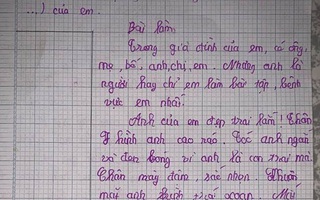 ...) của em.
Bài làm
Trong gia đình của em, có ông,
mẹ, bố, anh, chị, em. Nhưng anh là
người hay chỉ em làm bài tập, bênh
vực em nhất.
Anh của em đẹp trai lắm! Thân
hình anh cao ráo. Tóc anh ngắn
và đen bóng vì anh là con trai mà.
Chân mày đậm, sắc nhọn. Khuôn
mặt anh hình trái xoan. Mũi